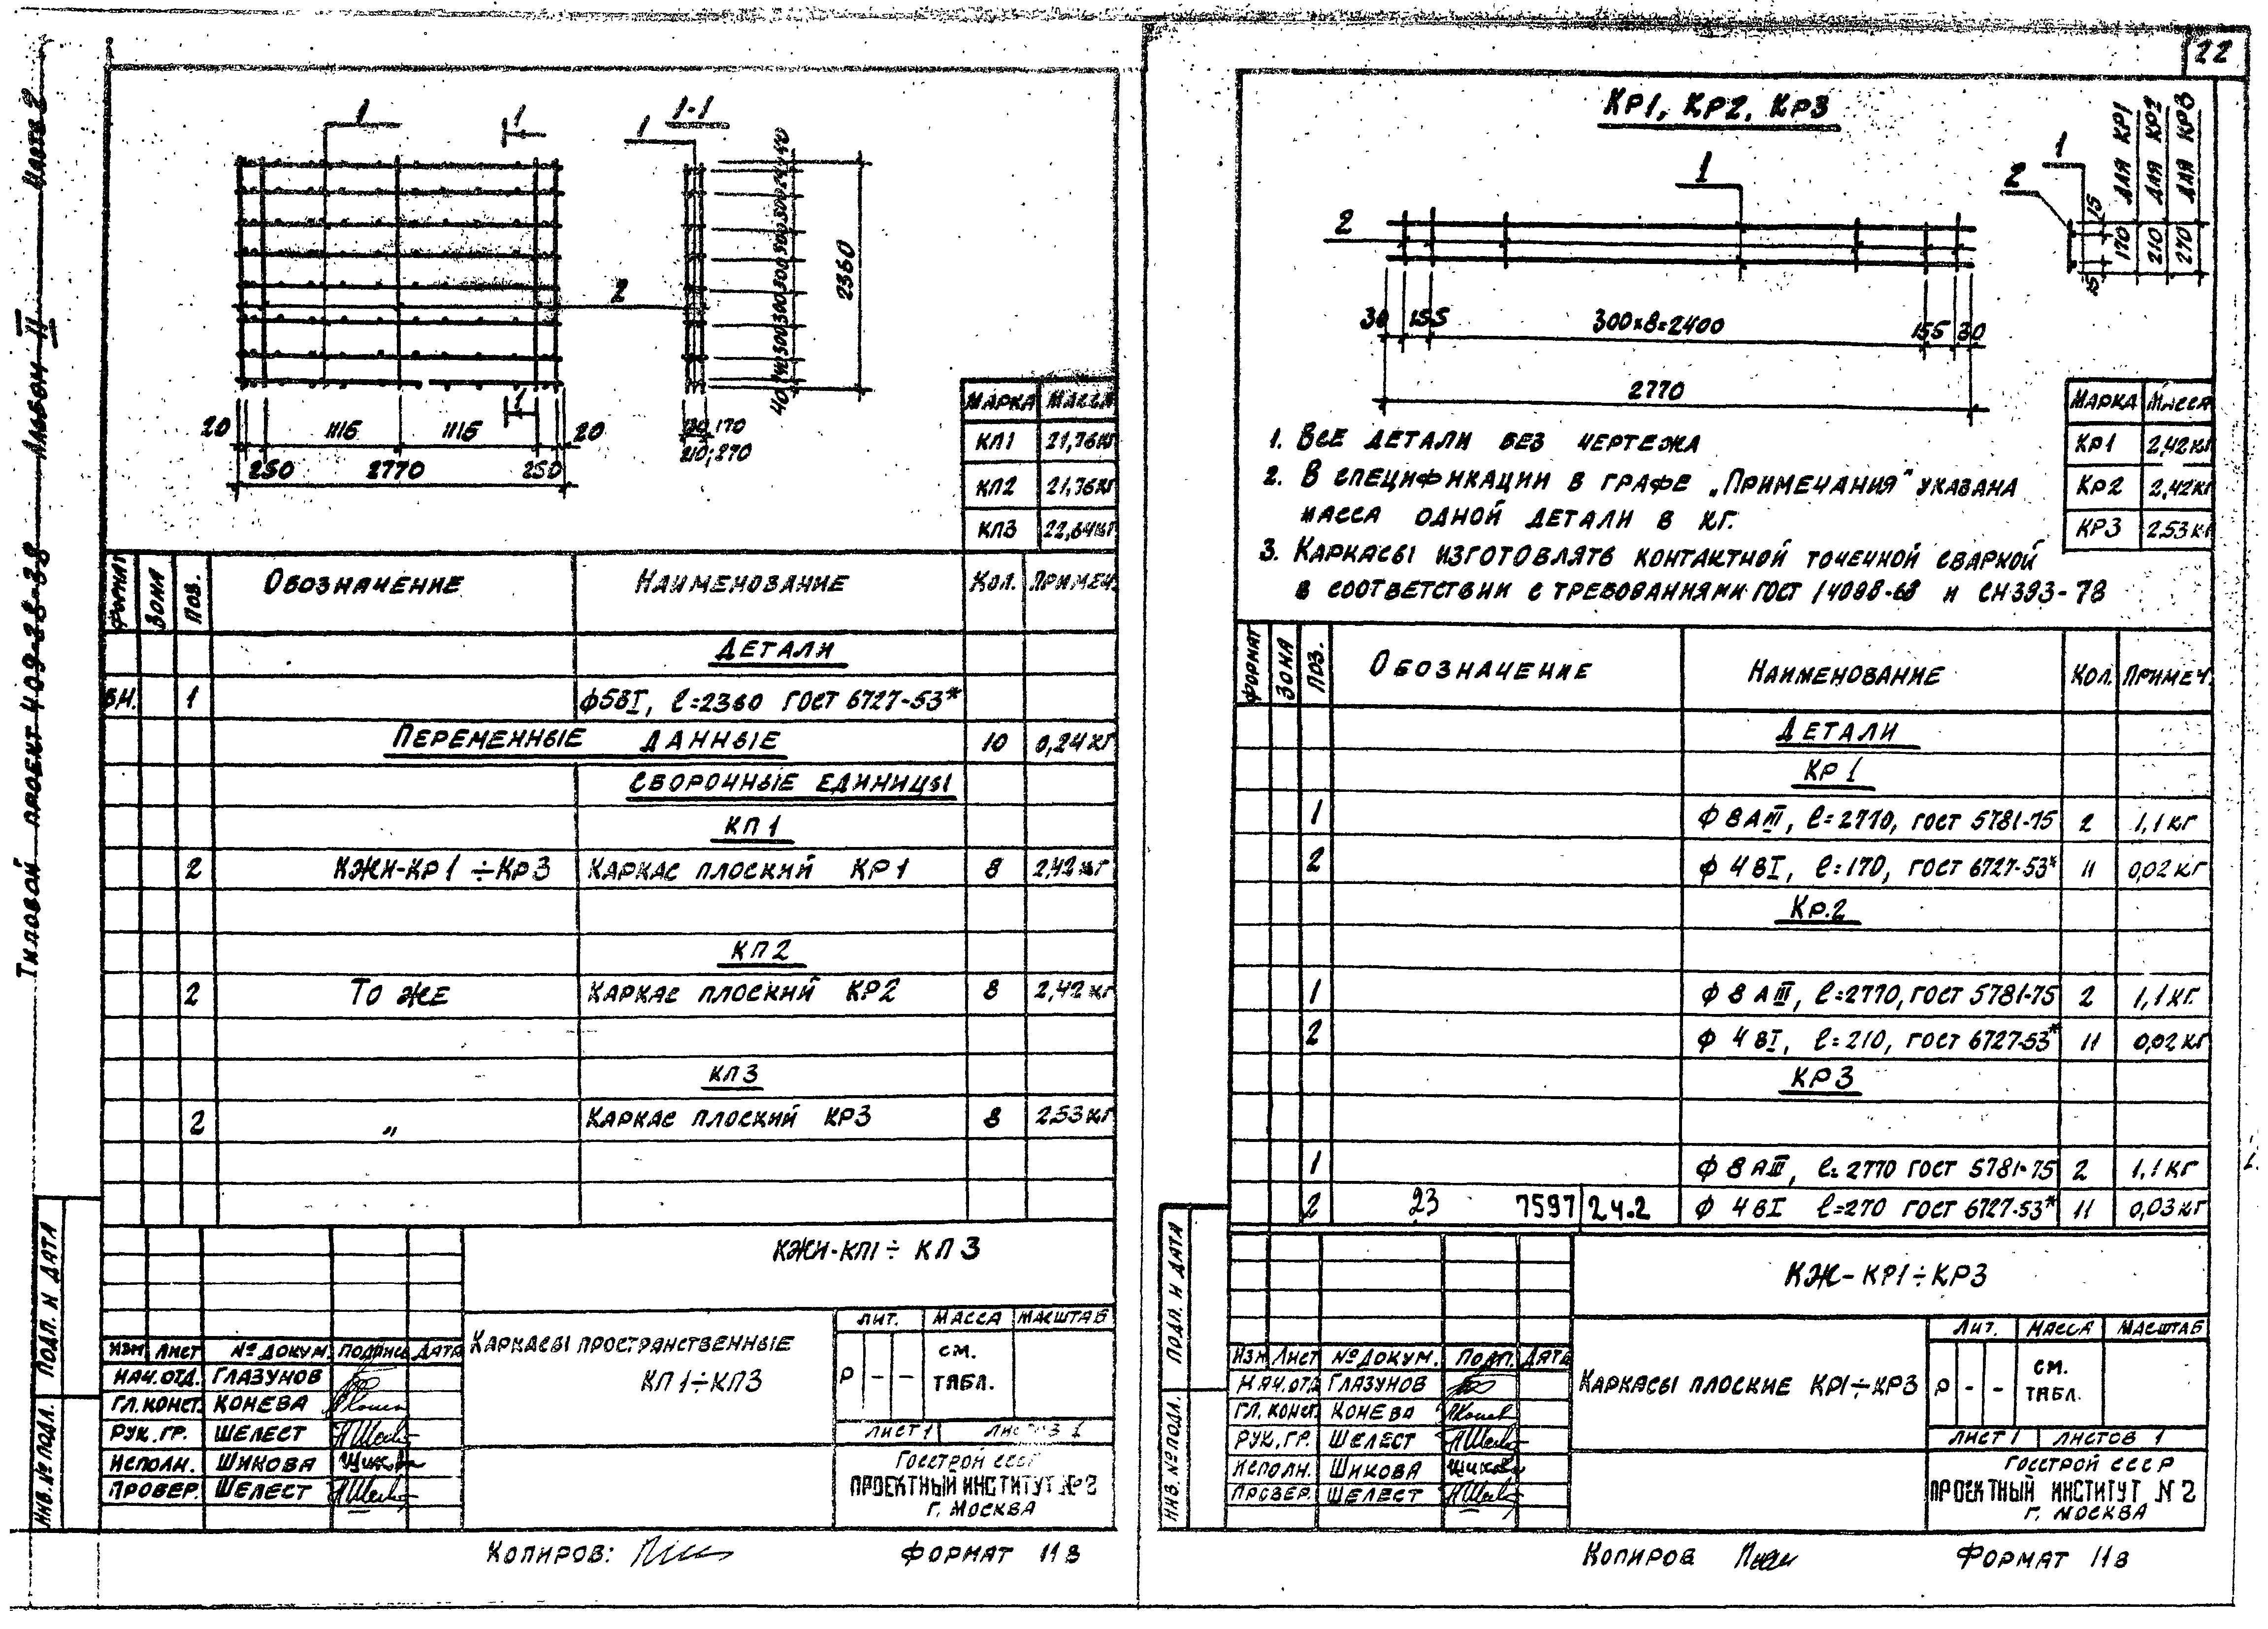 22
Типовой проект 409-28-38 Альбом II Часть 2
1
1
1-1
1
2
1
2360
20
1115
1115
20
250
2770
250
120,170
210;270
МАРКА МАССА
КП1 21,76КГ
КП2 21,76КГ
КП3 22,64КГ
ФОРМАТ
ЗОНА
ПОЗ.
ОБОЗНАЧЕНИЕ
НАИМЕНОВАНИЕ
КОЛ.
ПРИМЕЧ.
ДЕТАЛИ
БЧ. 1 ф5ВI, ℓ=2360 ГОСТ 6727-53*
ПЕРЕМЕННЫЕ ДАННЫЕ 10 0,24 КГ
СБОРОЧНЫЕ ЕДИНИЦЫ
КП1
2 КЖИ-КР1÷КР3 КАРКАС ПЛОСКИЙ КР1 8 2,42 КГ
КП2
2 ТО ЖЕ КАРКАС ПЛОСКИЙ КР2 8 2,42 КГ
КП3
2 „ КАРКАС ПЛОСКИЙ КР3 8 2,53 КГ
КЖИ-КП1÷КП3
КАРКАСЫ ПРОСТРАНСТВЕННЫЕ
КП1÷КП3
ЛИТ. МАССА МАСШТАБ
Р - - СМ.
ТАБЛ.
ЛИСТ 1 ЛИСТОВ 1
ГОССТРОЙ СССР
ПРОЕКТНЫЙ ИНСТИТУТ №2
Г. МОСКВА
ИЗМ ЛИСТ № ДОКУМ. ПОДПИСЬ ДАТА
НАЧ.ОТД. ГЛАЗУНОВ
ГЛ.КОНСТ. КОНЕВА
РУК.ГР. ШЕЛЕСТ
ИСПОЛН. ШИКОВА
ПРОВЕР. ШЕЛЕСТ
ИНВ.№ ПОДЛ. ПОДП. И ДАТА
КОПИРОВ: ФОРМАТ 11В
КР1, КР2, КР3
1
2
1
2
15
15
170 ДЛЯ КР1
210 ДЛЯ КР2
270 ДЛЯ КР3
30 155 300х8=2400 155 30
2770
МАРКА МАССА
КР1 2,42 КГ
КР2 2,42 КГ
КР3 2,53 КГ
1. ВСЕ ДЕТАЛИ БЕЗ ЧЕРТЕЖА
2. В СПЕЦИФИКАЦИИ В ГРАФЕ „ПРИМЕЧАНИЯ" УКАЗАНА
МАССА ОДНОЙ ДЕТАЛИ В КГ.
3. КАРКАСЫ ИЗГОТОВЛЯТЬ КОНТАКТНОЙ ТОЧЕЧНОЙ СВАРКОЙ
В СООТВЕТСТВИИ С ТРЕБОВАНИЯМИ ГОСТ 14098-68 И СН 393-78
ФОРМАТ
ЗОНА
ПОЗ.
ОБОЗНАЧЕНИЕ
НАИМЕНОВАНИЕ
КОЛ.
ПРИМЕЧ.
ДЕТАЛИ
КР1
1 ф 8АIII, ℓ=2770, ГОСТ 5781-75 2 1,1 КГ
2 ф 4ВI, ℓ=170, ГОСТ 6727-53* 11 0,02 КГ
КР.2
1 ф 8 АIII, ℓ=2770, ГОСТ 5781-75 2 1,1 КГ.
2 ф 4ВI, ℓ=210, ГОСТ 6727-53* 11 0,02 КГ
КР3
1 ф 8 АIII, ℓ=2770 ГОСТ 5781-75 2 1,1 КГ
2 23 7597 2 ч.2 ф 4ВI ℓ=270 ГОСТ 6727-53* 11 0,03 КГ
КЖ-КР1÷КР3
КАРКАСЫ ПЛОСКИЕ КР1÷КР3
ЛИТ. МАССА МАСШТАБ
Р - - СМ.
ТАБЛ.
ЛИСТ 1 ЛИСТОВ 1
ГОССТРОЙ СССР
ПРОЕКТНЫЙ ИНСТИТУТ N 2
Г. МОСКВА
ИЗМ ЛИСТ № ДОКУМ. ПОДП. ДАТА
НАЧ.ОТД ГЛАЗУНОВ
ГЛ. КОНСТ. КОНЕВА
РУК. ГР. ШЕЛЕСТ
ИСПОЛН. ШИКОВА
ПРОВЕР. ШЕЛЕСТ
ИНВ.№ ПОДЛ. ПОДП. И ДАТА
КОПИРОВ ФОРМАТ 11В